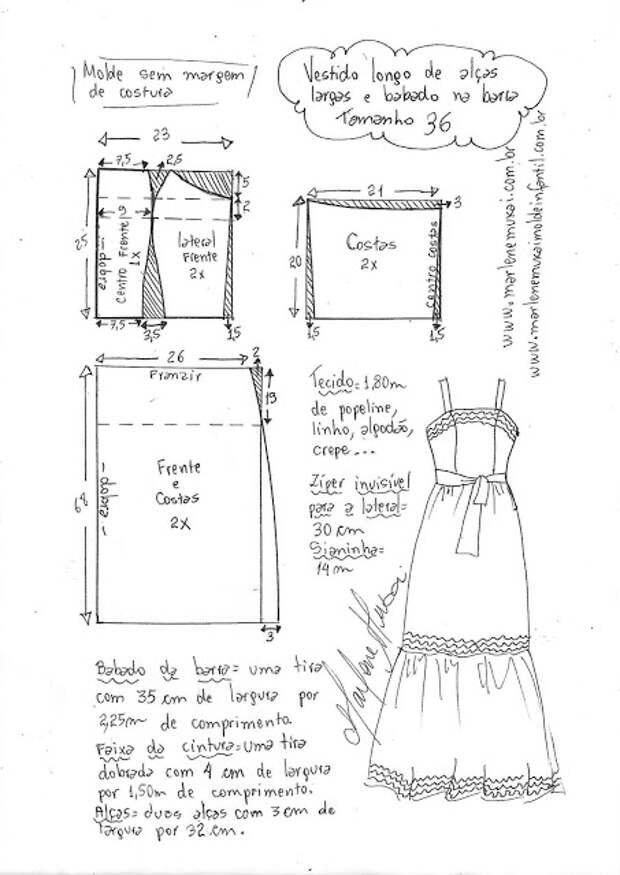 Molde sem margem
de costura
Vestido longo de alças
largas e babado na barra
Tamanho 36
www.marlenemukai.com.br
www.marlenemukaimoldeinfantil.com.br
23
7,5
2,5
5
2
9
25
dobra
Centro Frente
1x
lateral
Frente
2x
7,5
3,5
1,5
21
3
20
Costas
2x
centro costas
1,5
1,5
26
2
Franzir
19
68
dobra
Frente
e
Costas
2x
3
Tecido=1,80m
de popeline,
linho, algodão,
crepe...
Zíper invisível
para a lateral=
30 cm
Sianinha=
14m
Marlene Mukai
Babado da barra= uma tira
com 35 cm de largura por
2,25m de comprimento.
Faixa da cintura=uma tira
dobrada com 4 cm de largura
por 1,50m de comprimento.
Alças= duas alças com 3 cm de
largura por 32 cm.